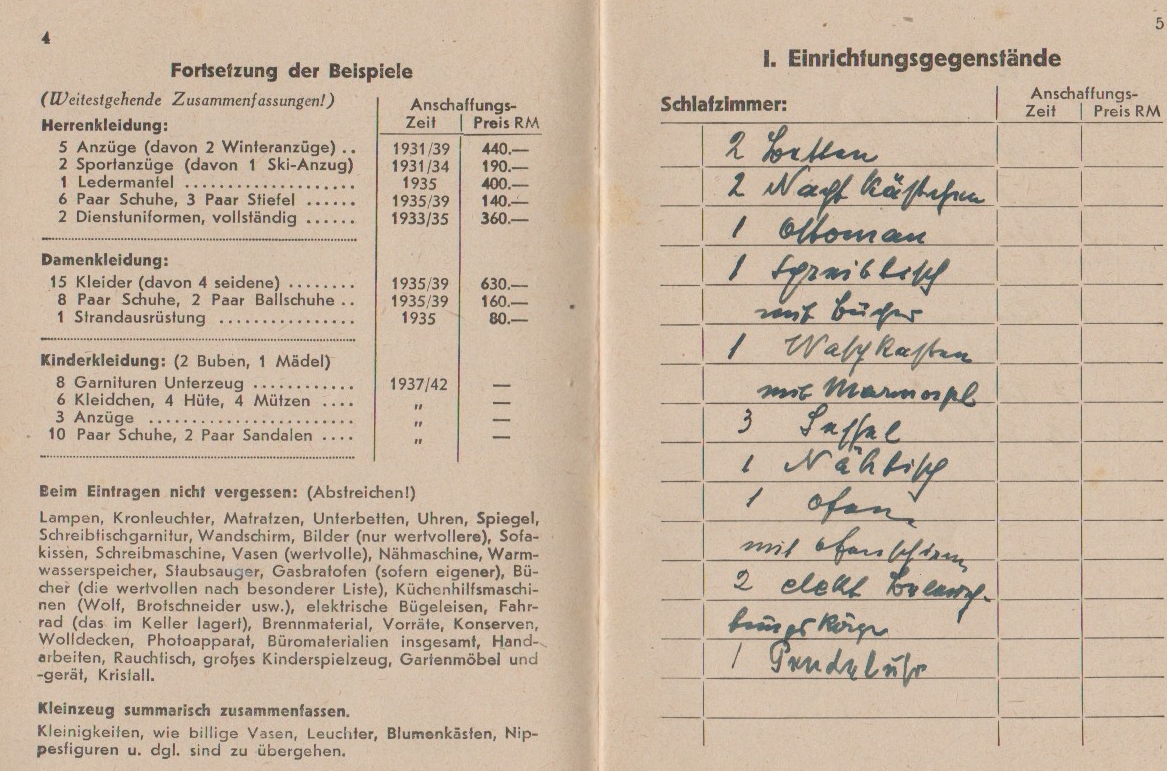 4
Fortsetzung der Beispiele
(Weitestgehende Zusammenfassungen!)
Anschaffungs-
Zeit Preis RM
Herrenkleidung:
5 Anzüge (davon 2 Winteranzüge) .. 1931/39 440.—
2 Sportanzüge (davon 1 Ski-Anzug) 1931/34 190.—
1 Ledermantel .................... 1935 400.—
6 Paar Schuhe, 3 Paar Stiefel ...... 1935/39 140.—
2 Dienstuniformen, vollständig ...... 1933/35 360.—
Damenkleidung:
15 Kleider (davon 4 seidene) ........ 1935/39 630.—
8 Paar Schuhe, 2 Paar Ballschuhe .. 1935/39 160.—
1 Strandausrüstung ................ 1935 80.—
Kinderkleidung: (2 Buben, 1 Mädel)
8 Garnituren Unterzeug ............ 1937/42 —
6 Kleidchen, 4 Hüte, 4 Mützen .... „ —
3 Anzüge ........................ „ —
10 Paar Schuhe, 2 Paar Sandalen .... „ —
Beim Eintragen nicht vergessen: (Abstreichen!)
Lampen, Kronleuchter, Matratzen, Unterbetten, Uhren, Spiegel,
Schreibtischgarnitur, Wandschirm, Bilder (nur wertvollere), Sofa-
kissen, Schreibmaschine, Vasen (wertvolle), Nähmaschine, Warm-
wasserspeicher, Staubsauger, Gasbratofen (sofern eigener), Bü-
cher (die wertvollen nach besonderer Liste), Küchenhilfsmaschi-
nen (Wolf, Brotschneider usw.), elektrische Bügeleisen, Fahr-
rad (das im Keller lagert), Brennmaterial, Vorräte, Konserven,
Wolldecken, Photoapparat, Büromaterialien insgesamt, Hand-
arbeiten, Rauchtisch, großes Kinderspielzeug, Gartenmöbel und
-gerät, Kristall.
Kleinzeug summarisch zusammenfassen.
Kleinigkeiten, wie billige Vasen, Leuchter, Blumenkästen, Nip-
pesfiguren u. dgl. sind zu übergehen.
5
I. Einrichtungsgegenstände
Schlafzimmer:
Anschaffungs-
Zeit Preis RM
2 Betten
2 Nacht Kästchen
1 Ottoman
1 Schreibtisch
mit Bücher
1 Waschkasten
mit Marmorpl
3 Sessel
1 Nähtisch
1 Ofen
mit Ofenschirm
2 elekt Beleuch-
tungskörper
1 Pendeluhr